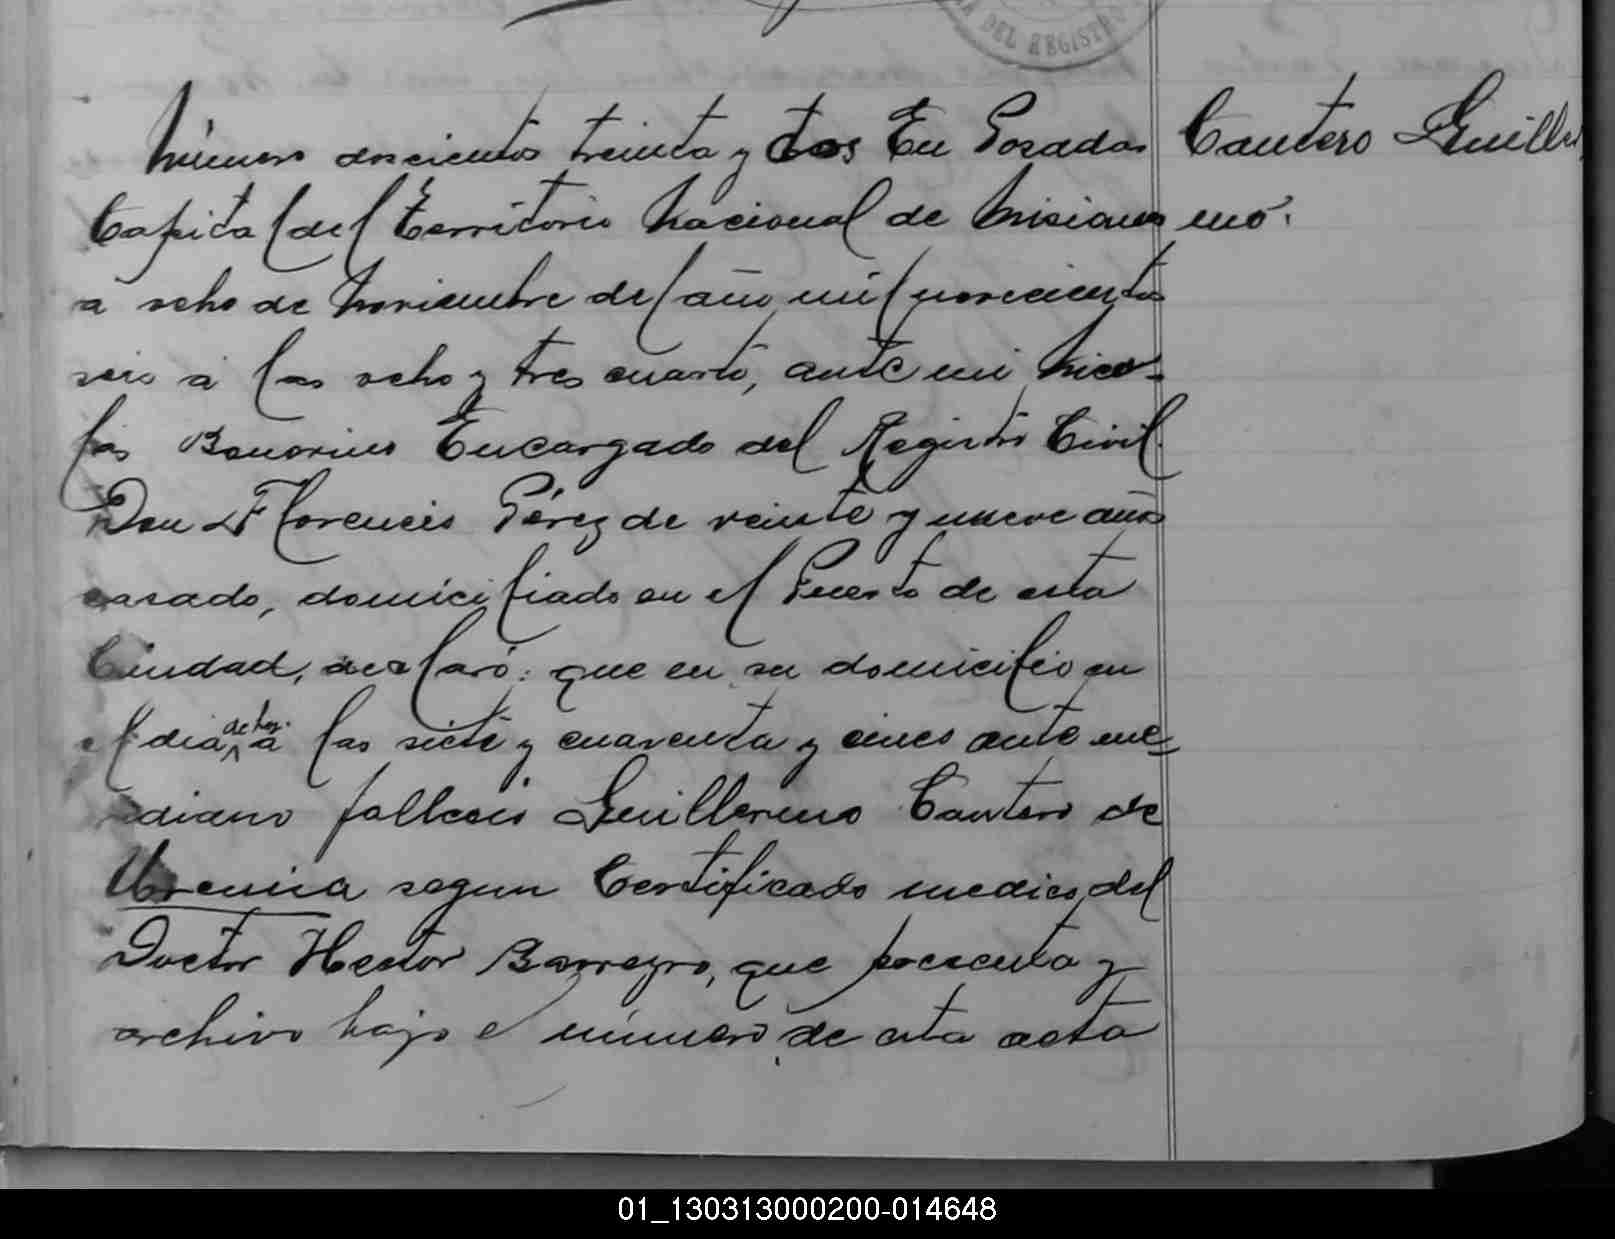 DEL REGISTRO
Número doscientos treinta y dos En Posadas
Cantero Guiller
Capital del Territorio Nacional de Misiones
mo.
a ocho de Noviembre del año mil novecientos
seis á las ocho y tres cuarto, ante mi Nico-
lás Bonorius Encargado del Registro Civil.
Don Florencio Pérez de veinte y nueve años
casado, domiciliado en el Puerto de esta
Ciudad, declaró: que en su domicilio en
el dia de hoy. á las siete y cuarenta y cinco ante me-
ridiano falleció Guillermo Cantero de
Uremia segun Certificado medico del
Doctor Hestor Barreyro, que presenta y
archivo bajo el número de esta acta
01_130313000200-014648